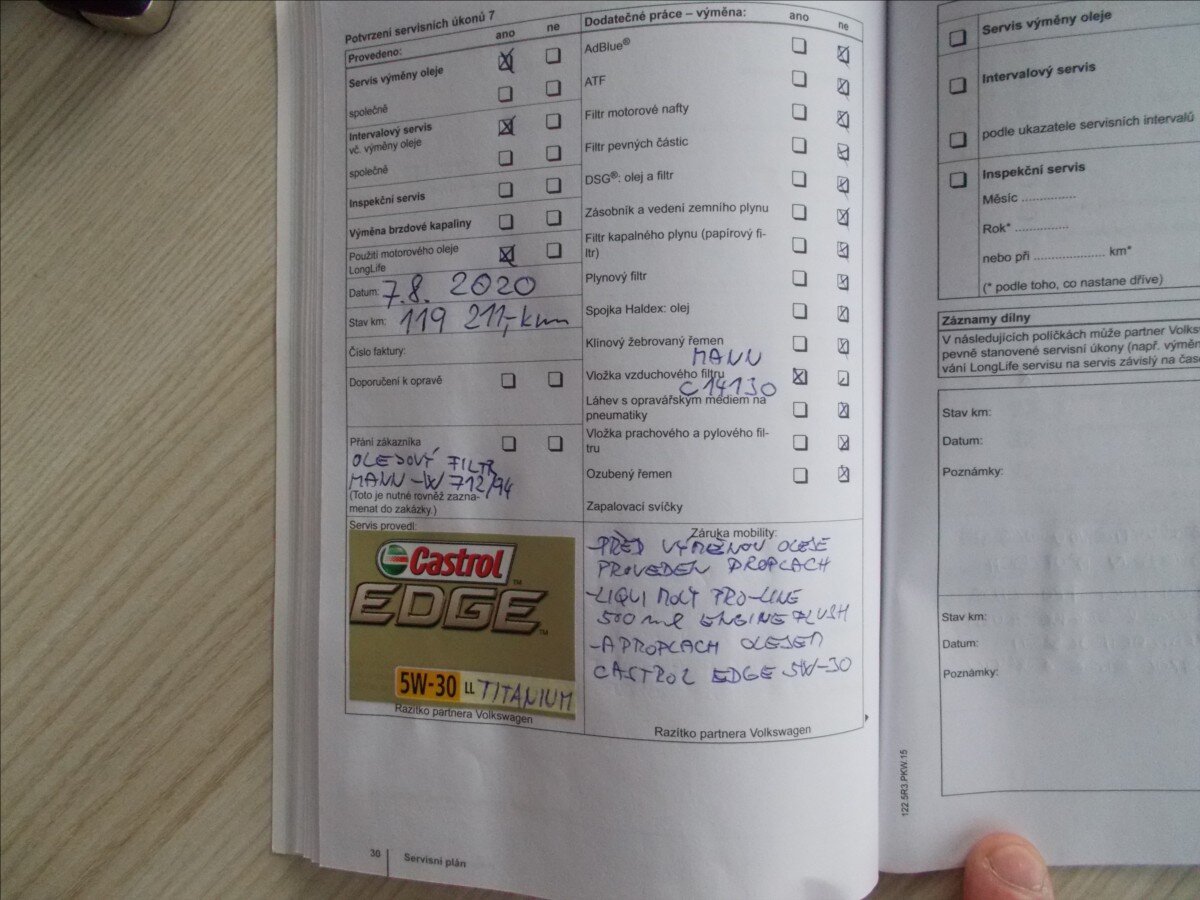 Potvrzení servisních úkonů 7
Provedeno:
ano
ne
Servis výměny oleje
společně
Intervalový servis
vč. výměny oleje
společně
Inspekční servis
Výměna brzdové kapaliny
Použití motorového oleje
LongLife
Datum: 7.8. 2020
Stav km: 119 211,- km
Číslo faktury:
Doporučení k opravě
Přání zákazníka
OLEJOVÝ FILTR
MANN - W 712/94
(Toto je nutné rovněž zazna-
menat do zakázky.)
Servis provedl:
Castrol
EDGE
5W-30 LL TITANIUM
Razítko partnera Volkswagen
Dodatečné práce – výměna:
ano
ne
AdBlue®
ATF
Filtr motorové nafty
Filtr pevných částic
DSG®: olej a filtr
Zásobník a vedení zemního plynu
Filtr kapalného plynu (papírový fi-
ltr)
Plynový filtr
Spojka Haldex: olej
Klínový žebrovaný řemen
MANN
Vložka vzduchového filtru
C14130
Láhev s opravářským médiem na
pneumatiky
Vložka prachového a pylového fil-
tru
Ozubený řemen
Zapalovací svíčky
Záruka mobility:
-PŘED VÝMĚNOU OLEJE
PROVEDEN PROPLACH
-LIQUI MOLY PRO-LINE
500 ml ENGINE FLUSH
-A PROPLACH OLEJEM
CASTROL EDGE 5W-30
Razítko partnera Volkswagen
30
Servisní plán
Servis výměny oleje
Intervalový servis
podle ukazatele servisních intervalů
Inspekční servis
Měsíc ...............
Rok* ..............
nebo při .................... km*
(* podle toho, co nastane dříve)
Záznamy dílny
V následujících políčkách může partner Volksw
pevně stanovené servisní úkony (např. výměn
vání LongLife servisu na servis závislý na čas
Stav km:
Datum:
Poznámky:
Stav km:
Datum:
Poznámky:
122.5R3.PKW.15